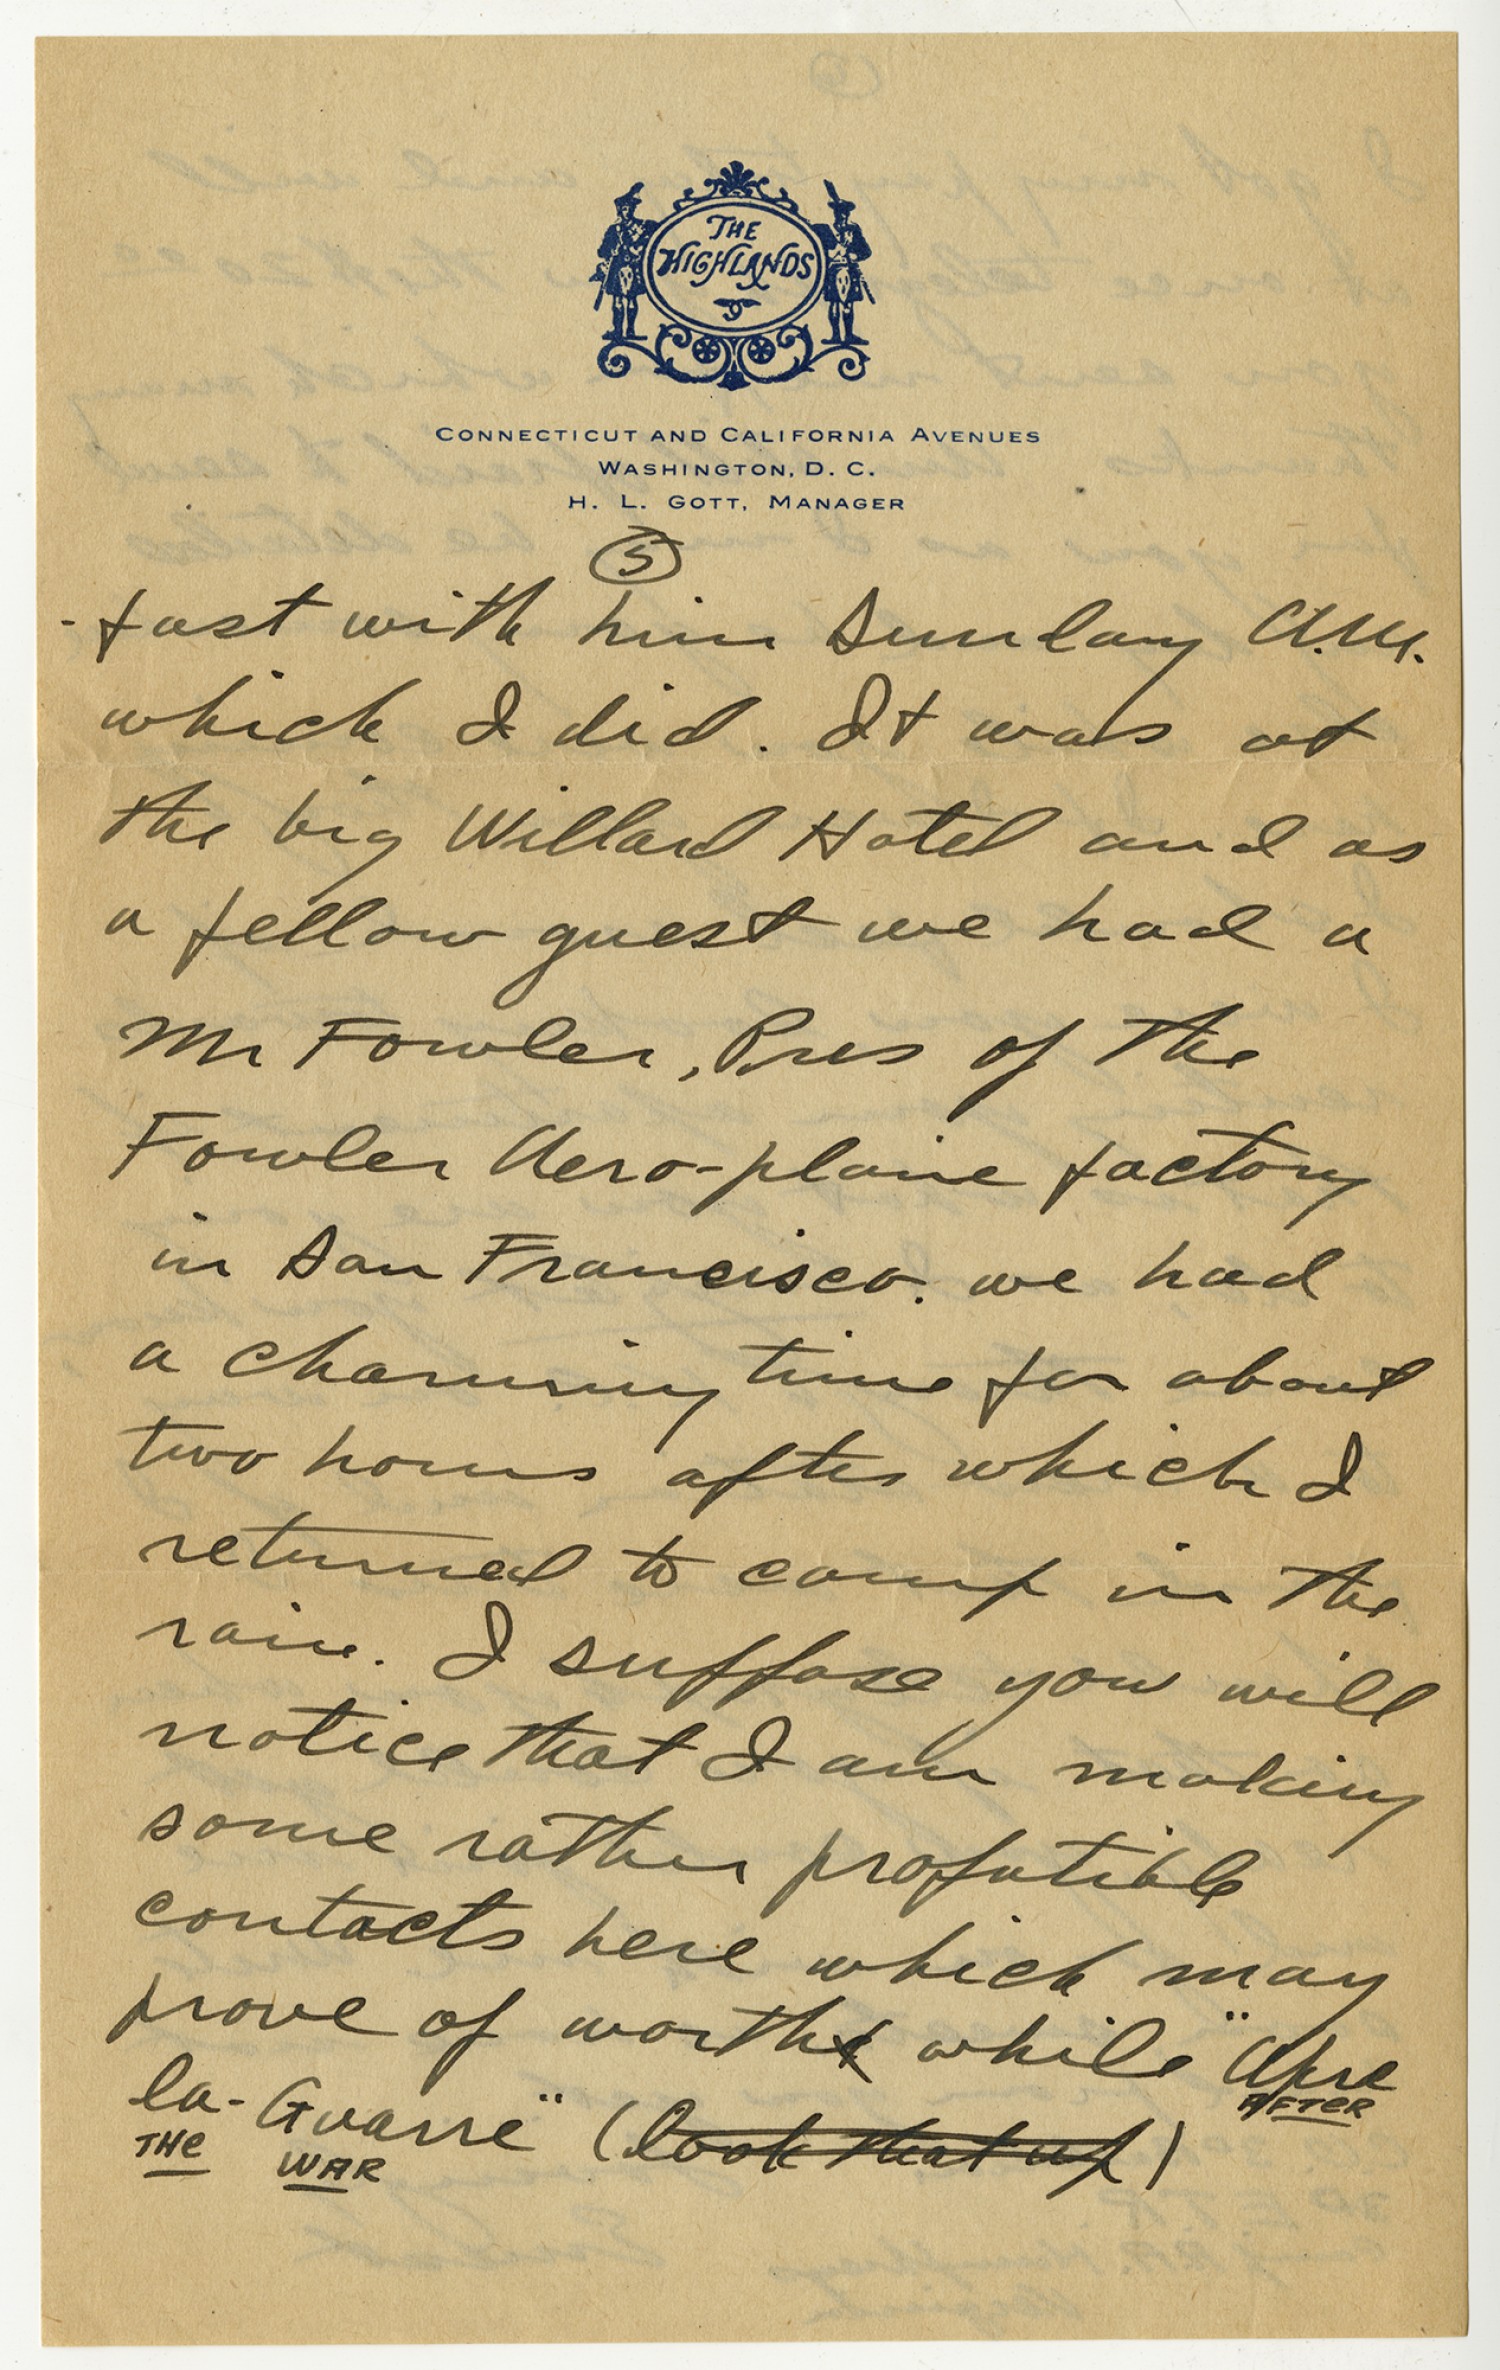 THE
HIGHLANDS
CONNECTICUT AND CALIFORNIA AVENUES
WASHINGTON, D. C.
H. L. GOTT, MANAGER
5
-fast with him Sunday A.M.
which I did. It was at
the big Willard Hotel and as
a fellow guest we had a
Mr Fowler, Pres of the
Fowler Aero-plane factory
in San Francisco. we had
a charming time for about
two hours after which I
returned to camp in the
rain. I suppose you will
notice that I am making
some rather profatible
contacts here which may
prove of worth while "Apre
AFTER
la-Guarre" (look that up)
THE WAR